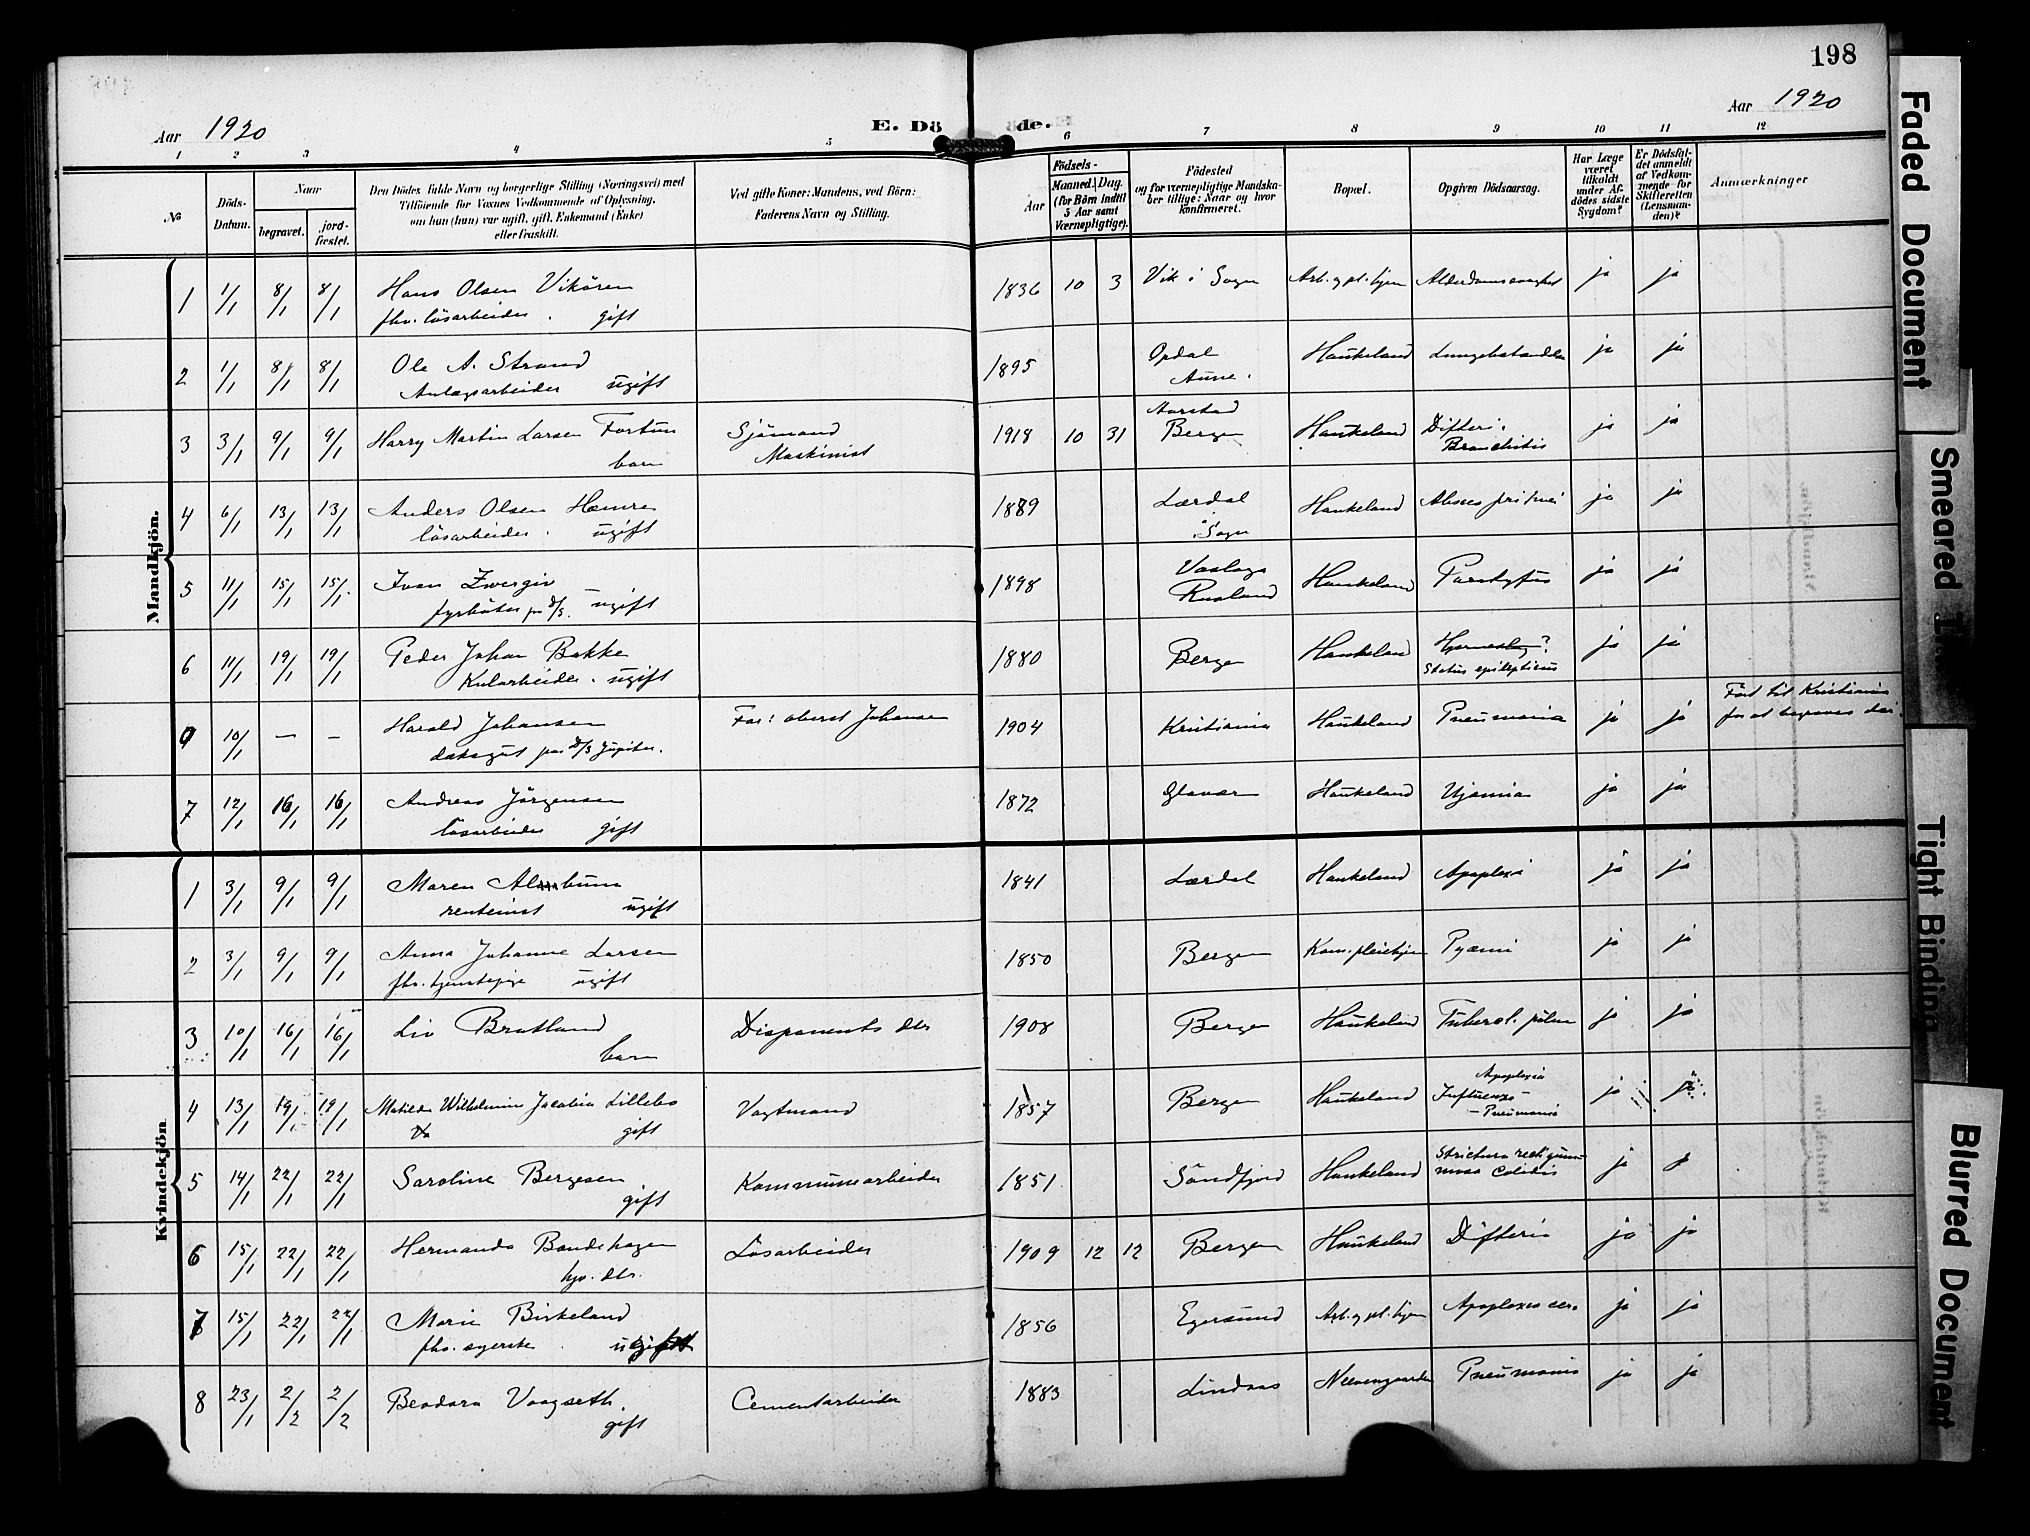 198
Aar 1920
E. Döde.
Aar 1920
1 2 3 4 5 6 7 8 9 10 11 12
№
Döds-Datum.
Naar
begravet.
jordfæstet.
Den Dödes fulde Navn og borgerlige Stilling (Næringsvei) med
Tilföiende for Voxnes Vedkommende af Oplysning,
om han (hun) var ugift, gift, Enkemand (Enke)
eller fraskilt.
Ved gifte Koner: Mandens, ved Börn:
Faderens Navn og Stilling.
Födsels-
Aar
Maaned. Dag.
(for Börn indtil
5 Aar samt
Værnepligtige).
Födested
og for værnepligtige Mandskaber tillige: Naar og hvor
konfirmeret.
Bopæl.
Opgiven Dödsaarsag.
Har Læge
været
tilkaldt
under Afdödes sidste
Sygdom?
Er Dödsfaldet anmeldt
af Vedkommende for
Skifteretten
(Lensmanden)?
Anmærkninger
Mandkjön.
1 1/1 8/1 8/1 Hans Olsen Vikören 1836 10 3 Vik i Sogn Arb. og pl. hjem Alderdomssvaghet ja ja
fhv. lösarbeider. gift
2 1/1 8/1 8/1 Ole A. Strand 1895 Opdal Haukeland ja ja
Anlægsarbeider ugift Aune.
3 3/1 9/1 9/1 Harry Martin Larsen Fortun Sjömand 1918 10 31 Aarstad Bergen Haukeland Difteri. ja ja
barn Maskinist Bronchitis
4 6/1 13/1 13/1 Anders Olsen Hamre 1889 Lærdal Haukeland ja ja
lösarbeider. ugift i Sogn
5 11/1 15/1 15/1 Ivan Zwergiv 1898 Haukeland Paratyfus ja ja
fyrböter paa D/S. ugift Rusland
6 11/1 19/1 19/1 Peder Johan Bakke 1880 Bergen Haukeland Hjerneslag? ja ja
Kularbeider. ugift Status epilepticus
9 10/1 — — Harald Johansen Far: oberst Johansen 1904 Kristiania Haukeland Pneumonia ja ja Fört til Kristiania
daksgut paa D/S Jupiter. for at begraves der.
7 12/1 16/1 16/1 Andreas Jörgensen 1872 Haukeland ja ja
lösarbeider gift
Kvindekjön
1 3/1 9/1 9/1 Maren 1841 Lærdal Haukeland Apoplexi ja ja
ugift
2 3/1 9/1 9/1 Anna Johanne Larsen 1850 Bergen Kom. pleiehjem Pyæmi ja ja
fhv. tjenestepige ugift
3 10/1 16/1 16/1 Liv Bratland Disponents dtr 1908 Bergen Haukeland Tubercl. pulm ja ja
barn
4 13/1 19/1 19/1 Matilde Wilhelmine Jacobine Lillebö Vagtmand 1857 Bergen Haukeland Apoplexia ja ja
gift Influenza-
-Pneumonia
5 14/1 22/1 22/1 Saroline Bergesen Kommunearbeider 1851 Söndfjord Haukeland Strictura recti ja j
gift
6 15/1 22/1 22/1 Hermanda Bondehagen Lösarbeider 1909 12 12 Bergen Haukeland Difteri ja ja
hjv. dtr.
7 15/1 22/1 22/1 Marie Birkeland 1856 Egersund Arb. og pl. hjem Apoplexia cer. ja ja
fhv. syerske. ugift
8 23/1 2/2 2/2 Beadora Vaagseth. Cementarbeider 1883 Lindaas Neevengaarden Pneumonia ja ja
gift
Faded Document
Smeared
Tight Binding
Blurred Document